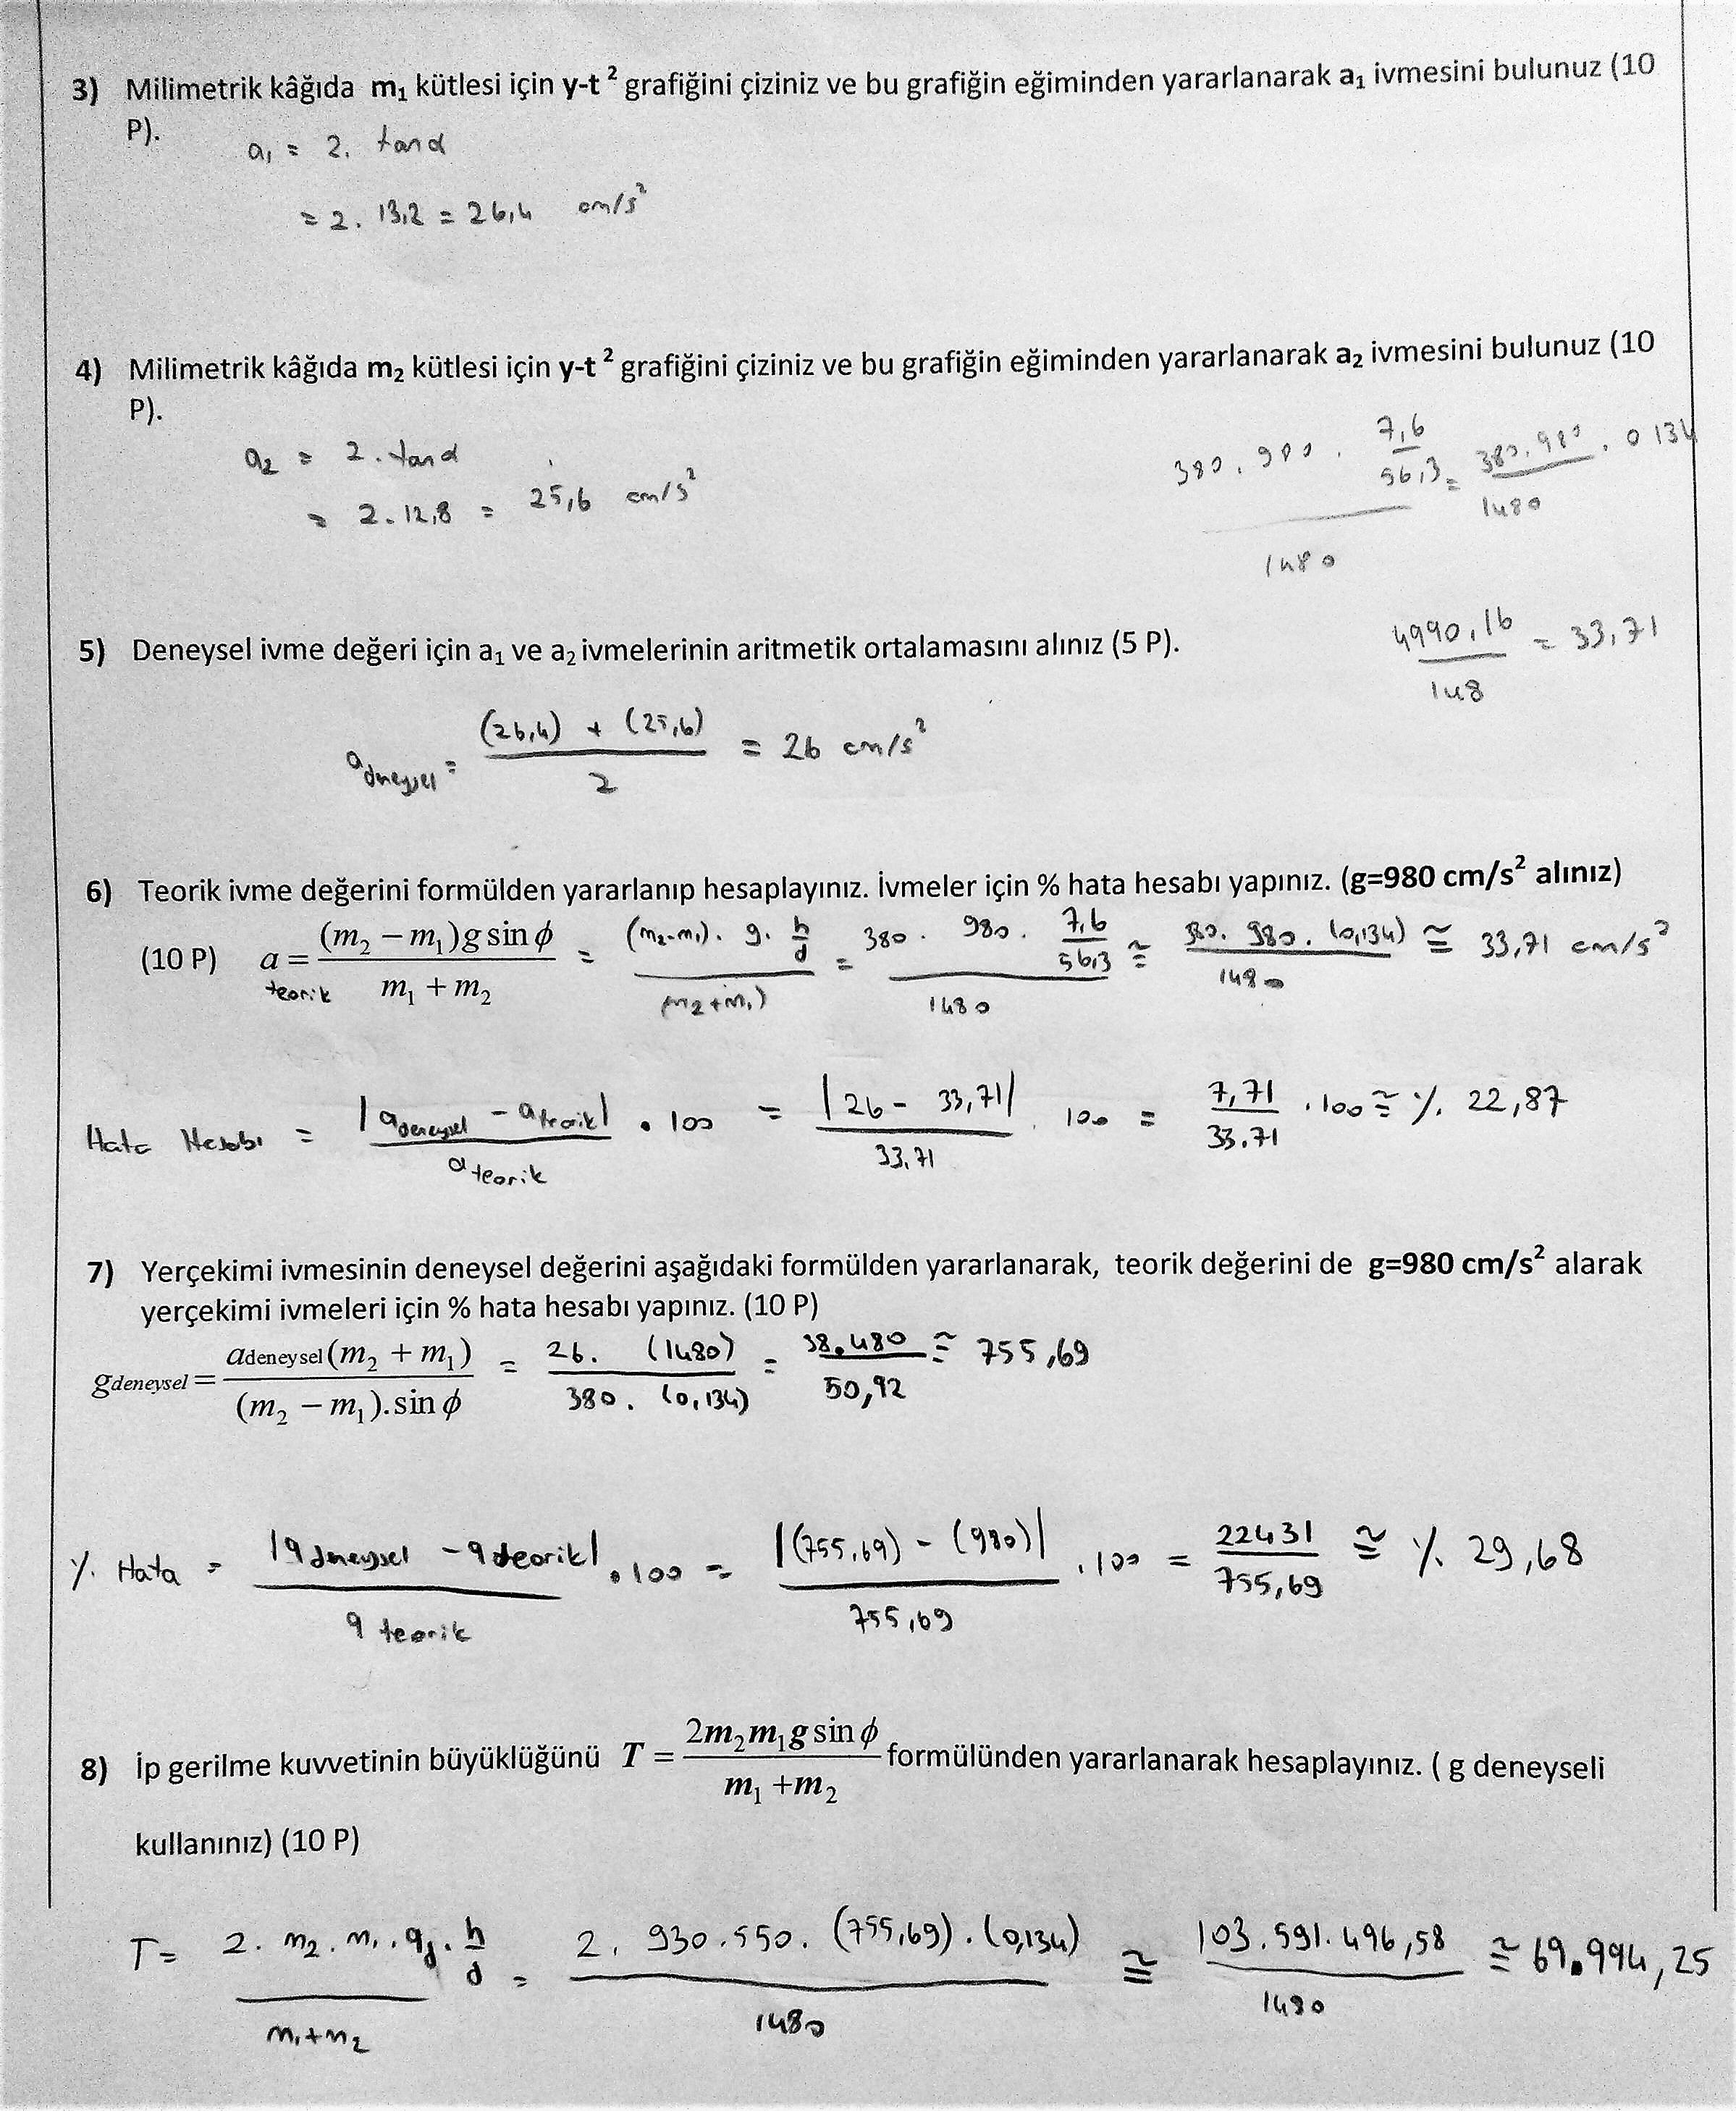 3) Milimetrik kâğıda m₁ kütlesi için y-t² grafiğini çiziniz ve bu grafiğin eğiminden yararlanarak a₁ ivmesini bulunuz (10
P).
a₁ = 2. tan α
= 2. 13,2 = 26,4 cm/s²
4) Milimetrik kâğıda m₂ kütlesi için y-t² grafiğini çiziniz ve bu grafiğin eğiminden yararlanarak a₂ ivmesini bulunuz (10
P).
a₂ = 2. tan α
= 2. 12,8 = 25,6 cm/s²
380. 980. 7,6/56,3 / 1480 = 380. 980. 0 134 / 1480
4990,16 / 148 = 33,71
5) Deneysel ivme değeri için a₁ ve a₂ ivmelerinin aritmetik ortalamasını alınız (5 P).
a deneysel = (26,4) + (25,6) / 2 = 26 cm/s²
6) Teorik ivme değerini formülden yararlanıp hesaplayınız. İvmeler için % hata hesabı yapınız. (g=980 cm/s² alınız)
(10 P) a teorik = (m₂ − m₁)g sin ϕ / m₁ + m₂ = (m₂-m₁). g. h/d / (m₂+m₁) = 380. 980. 7,6/56,3 / 1480 ≅ 380. 980. (0,134) / 1480 ≅ 33,71 cm/s²
Hata Hesabı = |a deneysel - a teorik| / a teorik . 100 = |26 - 33,71| / 33,71 . 100 = 7,71 / 33.71 . 100 ≅ % 22,87
7) Yerçekimi ivmesinin deneysel değerini aşağıdaki formülden yararlanarak, teorik değerini de g=980 cm/s² alarak
yerçekimi ivmeleri için % hata hesabı yapınız. (10 P)
g deneysel = a deneysel (m₂ + m₁) / (m₂ − m₁).sin ϕ = 26. (1480) / 380. (0,134) = 38.480 / 50,92 ≅ 755,69
% Hata = |g deneysel - g teorik| / g teorik . 100 = |(755,69) - (980)| / 755,69 . 100 = 22431 / 755,69 ≅ % 29,68
8) İp gerilme kuvvetinin büyüklüğünü T = 2m₂m₁g sin ϕ / m₁ + m₂ formülünden yararlanarak hesaplayınız. ( g deneyseli
kullanınız) (10 P)
T = 2. m₂. m₁. g d. h/d / m₁+m₂ = 2. 930. 550. (755,69). (0,134) / 1480 ≅ 103.591.496,58 / 1480 ≅ 69.994,25